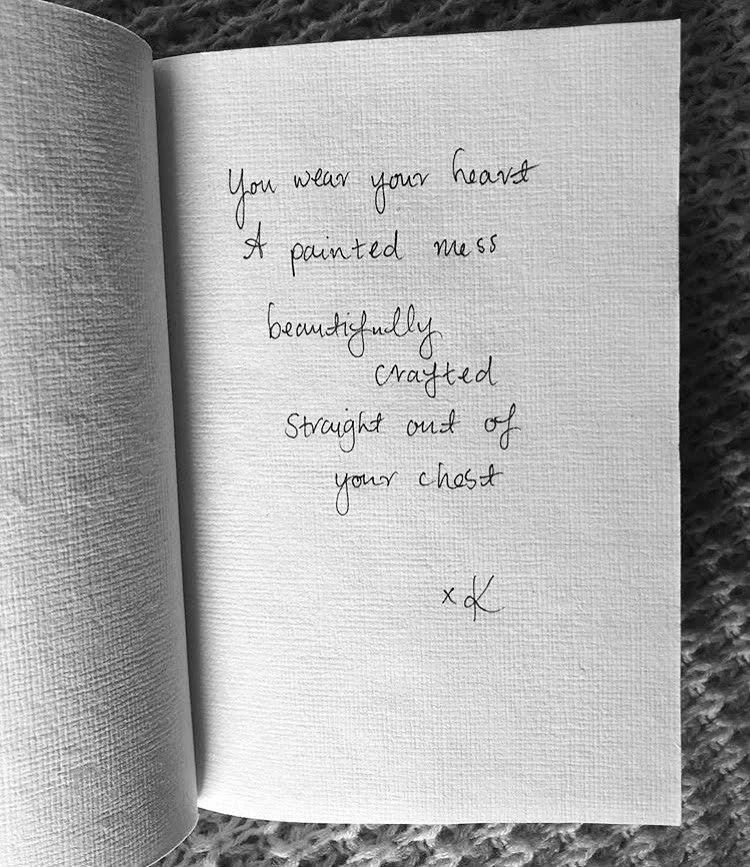 You wear your heart
A painted mess
beautifully
crafted
straight out of
your chest
x K